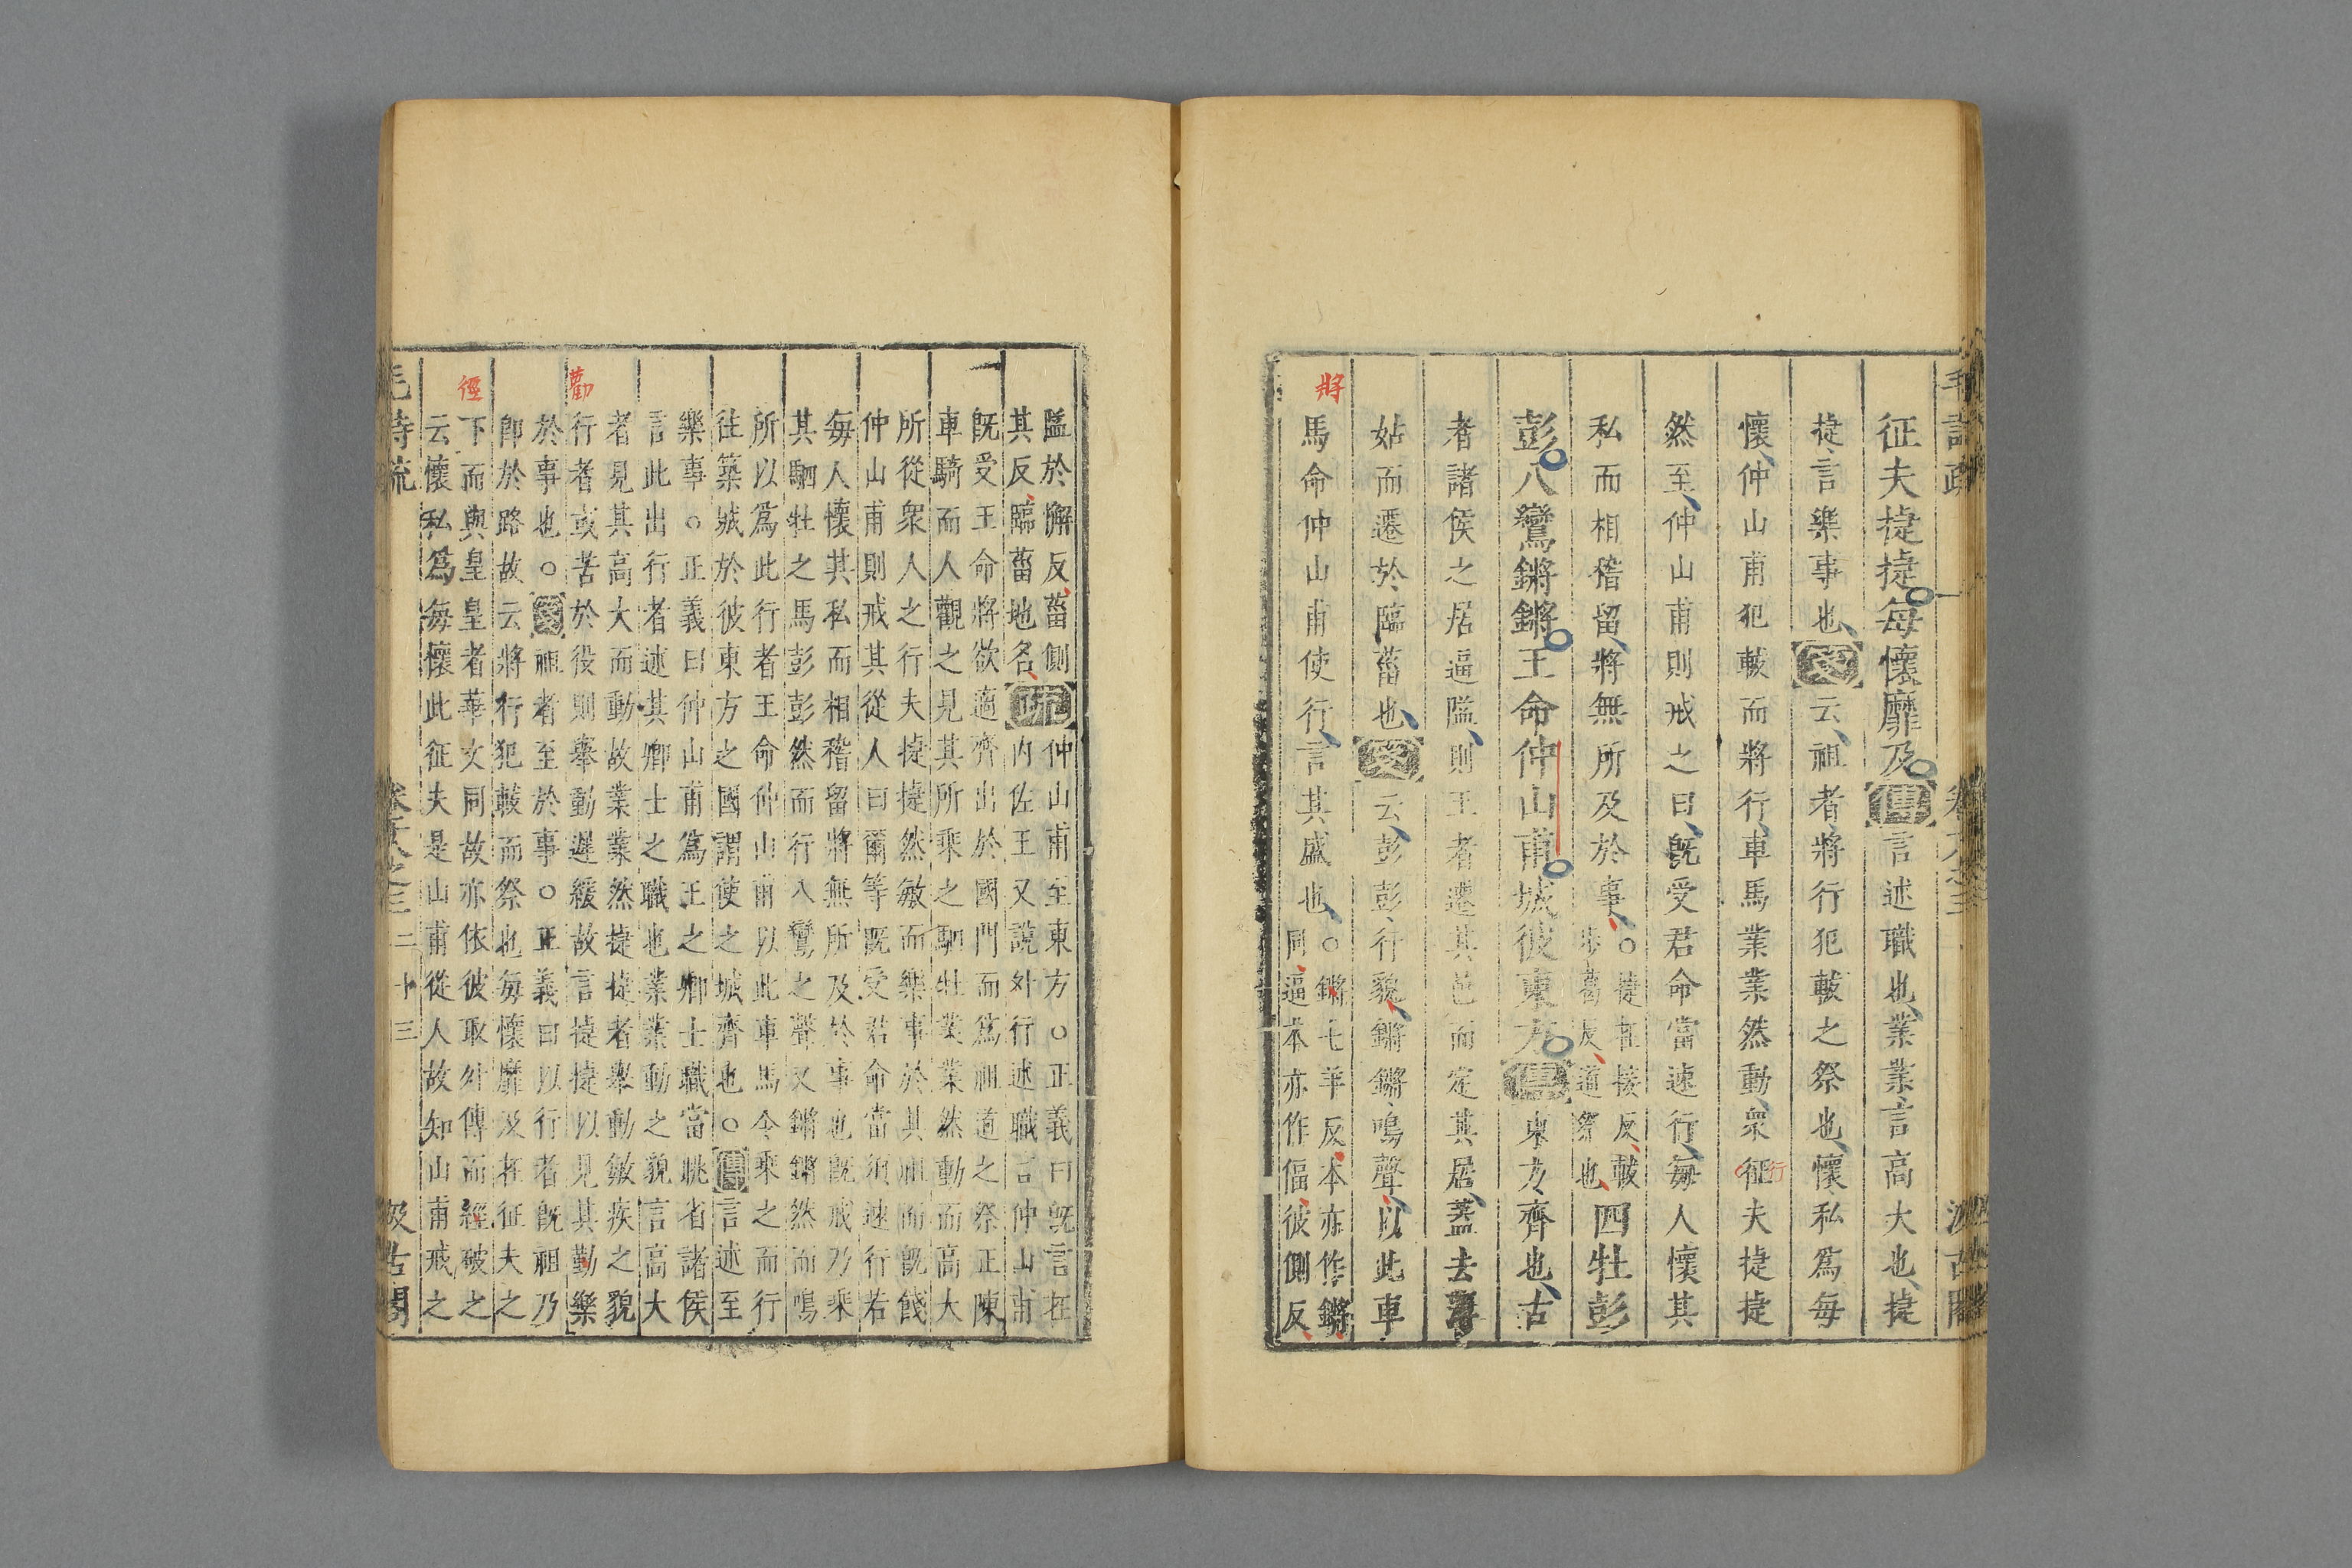 征夫捷捷每懷靡及傳言述職也業業言高大也捷
捷言樂事也箋云祖者將行犯軷之祭也懷私爲每
懷仲山甫犯軷而將行車馬業業然動衆征夫捷捷
行
然至仲山甫則戒之曰旣受君命當速行每人懷其
私而相稽留將無所及於事
○捷在接反軷
步葛反道祭也
四牡彭
彭八鸞鏘鏘王命仲山甫城彼東方傳東方齊也古
者諸侯之居逼隘則王者遷其邑而定其居蓋去
姑而遷於臨菑也箋云彭彭行貌鏘鏘鳴聲以此車
將
馬命仲山甫使行言其盛也
○鏘七羊反本亦作鏘
同逼本亦作偪彼側反
隘於懈反菑側
其反臨菑地名
疏
仲山甫至東方○正義曰旣言在
內佐王又說外行述職言仲山甫
旣受王命將欲適齊出於國門而爲祖道之祭正陳
車騎而人觀之見其所乘之駟牡業業然動而高大
所從衆人之行夫捷捷然敏而樂事於其祖而旣餞
仲山甫則戒其從人曰爾等旣受君命當須速行若
每人懷其私而相稽留將無所及於事也旣戒乃乘
其駟牡之馬彭彭然而行八鸞之聲又鏘鏘然而鳴
所以爲此行者王命仲山甫以此車馬令乘之而行
徃築城於彼東方之國謂使之城齊也○傳言述至
樂事○正義曰仲山甫爲王之卿士職當眺省諸侯
言此出行者述其卿士之職也業業動之貌言高大
者見其高大而動故業業然捷捷者舉動敏疾之貌
勸
行者或苦於役則舉動遲緩故言捷捷以見其勤樂
於事也○箋祖者至於事○正義曰以行者旣祖乃
卽於路故云將行犯軷而祭也每懷靡及在征夫之
徑
下而與皇皇者華文同故亦依彼取外傳而經破之
云懷私爲每懷此征夫是山甫從人故知山甫戒之
毛詩疏
卷十八之三
二十三
汲古閣